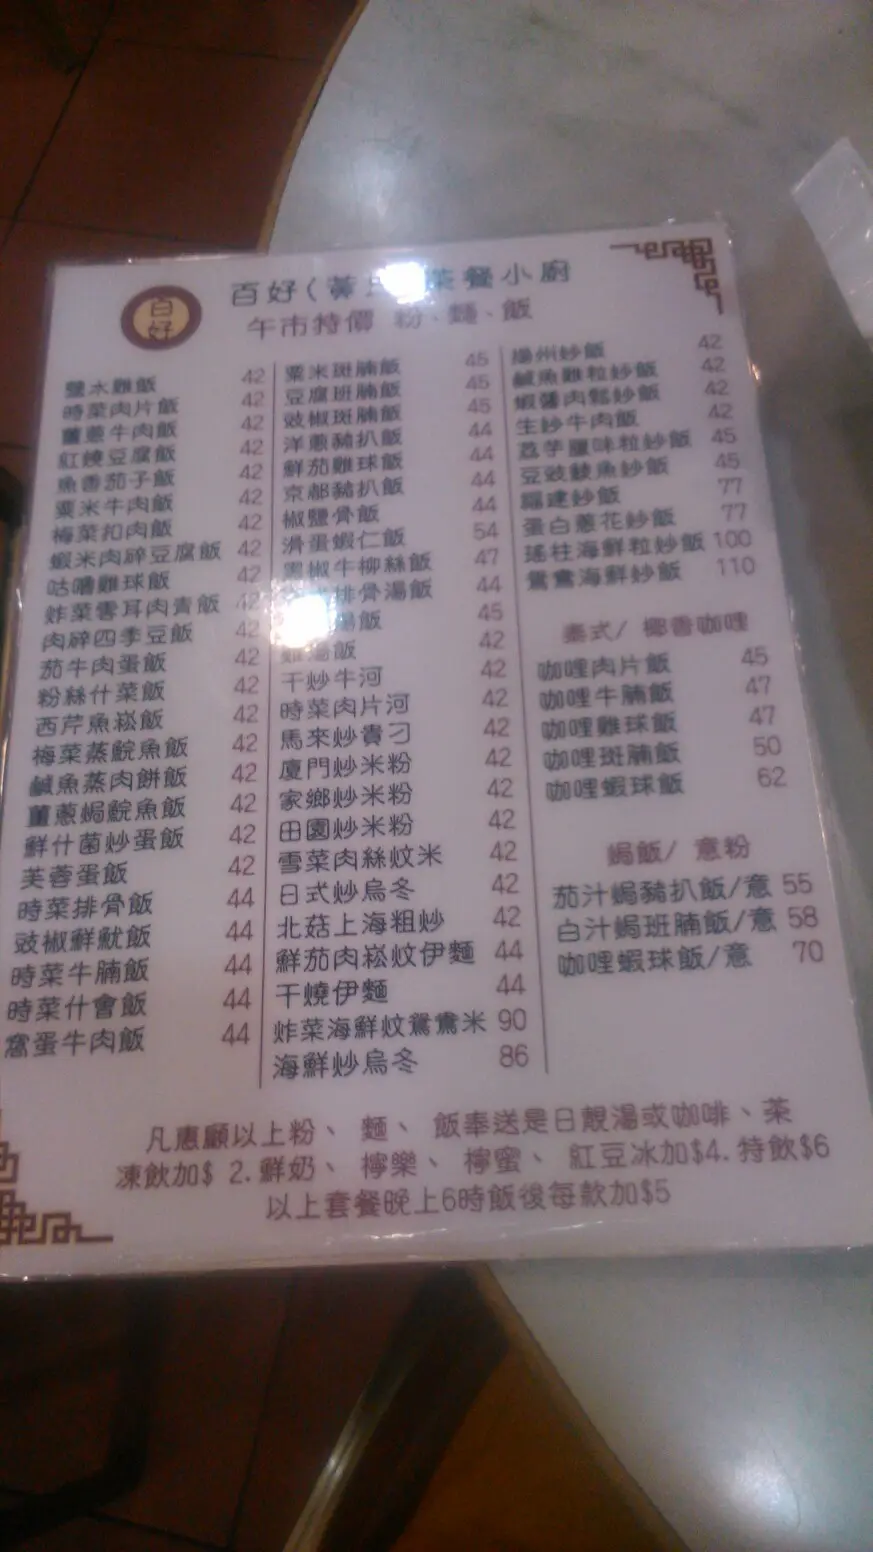 百好
百好(黃 茶餐小廚
午市特價 粉、麵、飯
鹽水雞飯 42
時菜肉片飯 42
薑蔥牛肉飯 42
紅燒豆腐飯 42
魚香茄子飯 42
粟米牛肉飯 42
梅菜扣肉飯 42
蝦米肉碎豆腐飯 42
咕嚕雞球飯 42
炸菜雲耳肉青飯 42
肉碎四季豆飯 42
茄牛肉蛋飯 42
粉絲什菜飯 42
西芹魚崧飯 42
梅菜蒸鯇魚飯 42
鹹魚蒸肉餅飯 42
薑蔥焗鯇魚飯 42
鮮什菌炒蛋飯 42
芙蓉蛋飯 42
時菜排骨飯 44
豉椒鮮魷飯 44
時菜牛腩飯 44
時菜什會飯 44
窩蛋牛肉飯 44
粟米斑腩飯 45
豆腐斑腩飯 45
豉椒斑腩飯 45
洋蔥豬扒飯 44
鮮茄雞球飯 44
京都豬扒飯 44
椒鹽骨飯 44
滑蛋蝦仁飯 54
黑椒牛柳絲飯 47
排骨湯飯 44
湯飯 45
雞湯飯 42
干炒牛河 42
時菜肉片河 42
馬來炒貴刁 42
廈門炒米粉 42
家鄉炒米粉 42
田園炒米粉 42
雪菜肉絲炆米 42
日式炒烏冬 42
北菇上海粗炒 42
鮮茄肉崧炆伊麵 44
干燒伊麵 44
炸菜海鮮炆鴛鴦米 90
海鮮炒烏冬 86
揚州炒飯 42
鹹魚雞粒炒飯 42
蝦醬肉鬆炒飯 42
生炒牛肉飯 42
荔芋臘味粒炒飯 45
豆豉鯪魚炒飯 45
福建炒飯 77
蛋白蔥花炒飯 77
瑤柱海鮮粒炒飯 100
鴛鴦海鮮炒飯 110
泰式/ 椰香咖喱
咖哩肉片飯 45
咖哩牛腩飯 47
咖哩雞球飯 47
咖哩斑腩飯 50
咖哩蝦球飯 62
焗飯/ 意粉
茄汁焗豬扒飯/意 55
白汁焗班腩飯/意 58
咖哩蝦球飯/意 70
凡惠顧以上粉、麵、飯奉送是日靚湯或咖啡、茶
凍飲加$ 2.鮮奶、檸樂、檸蜜、紅豆冰加$4.特飲$6
以上套餐晚上6時飯後每款加$5